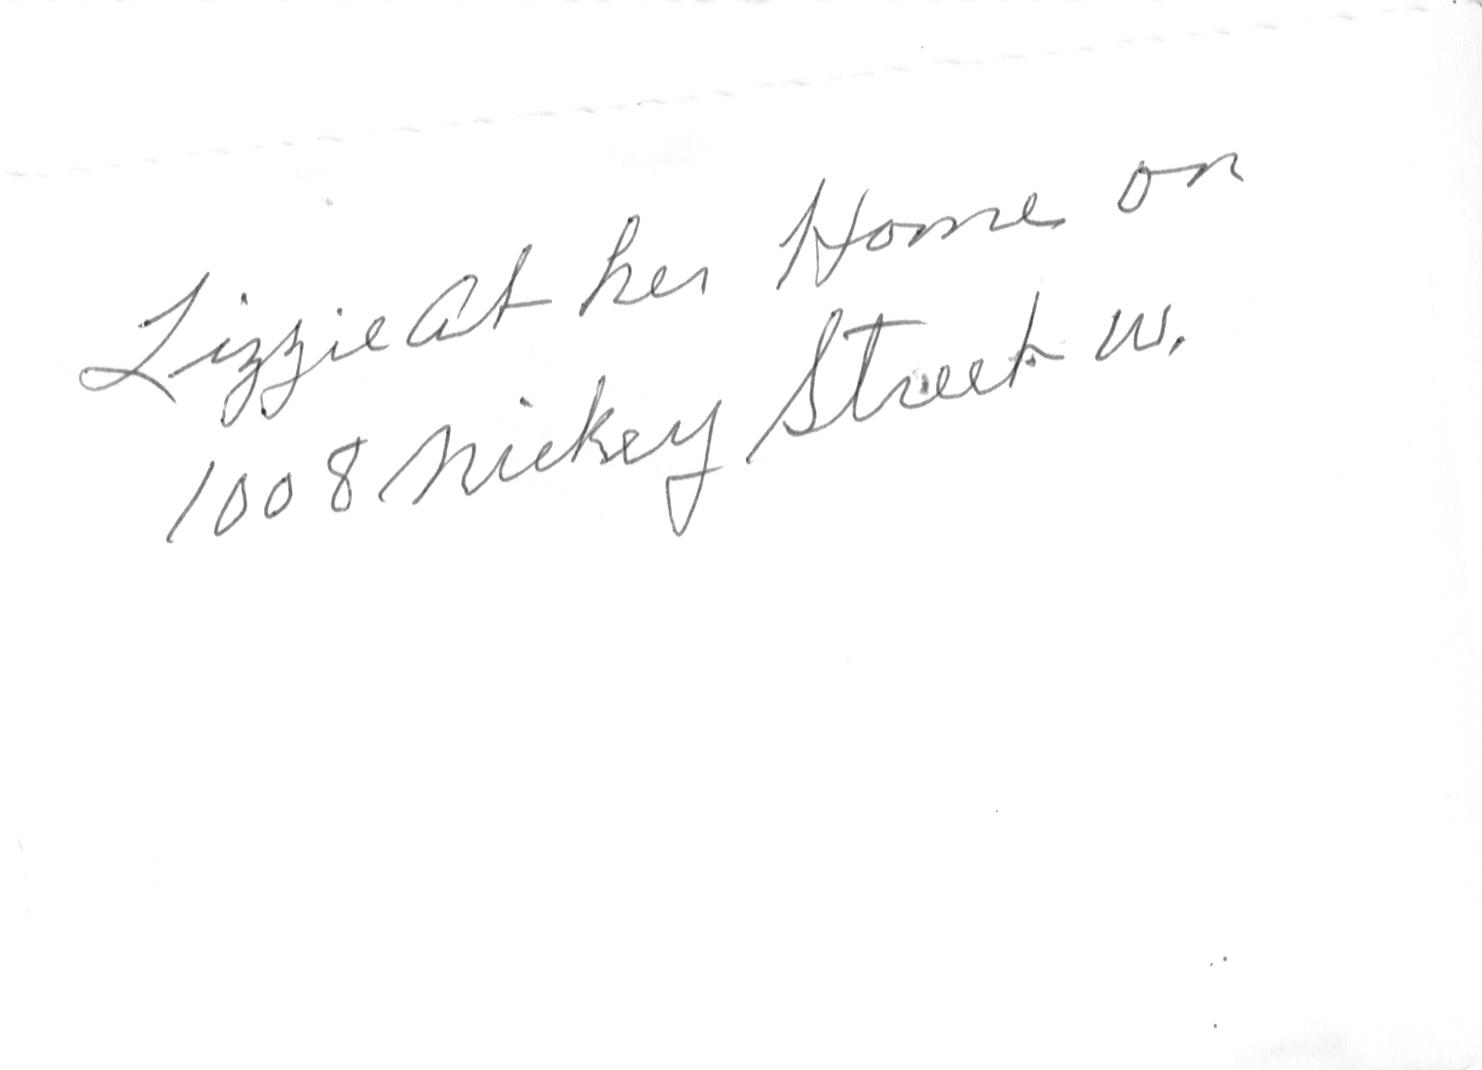 Lizzie At her Home on
1008 Nickey Street W.